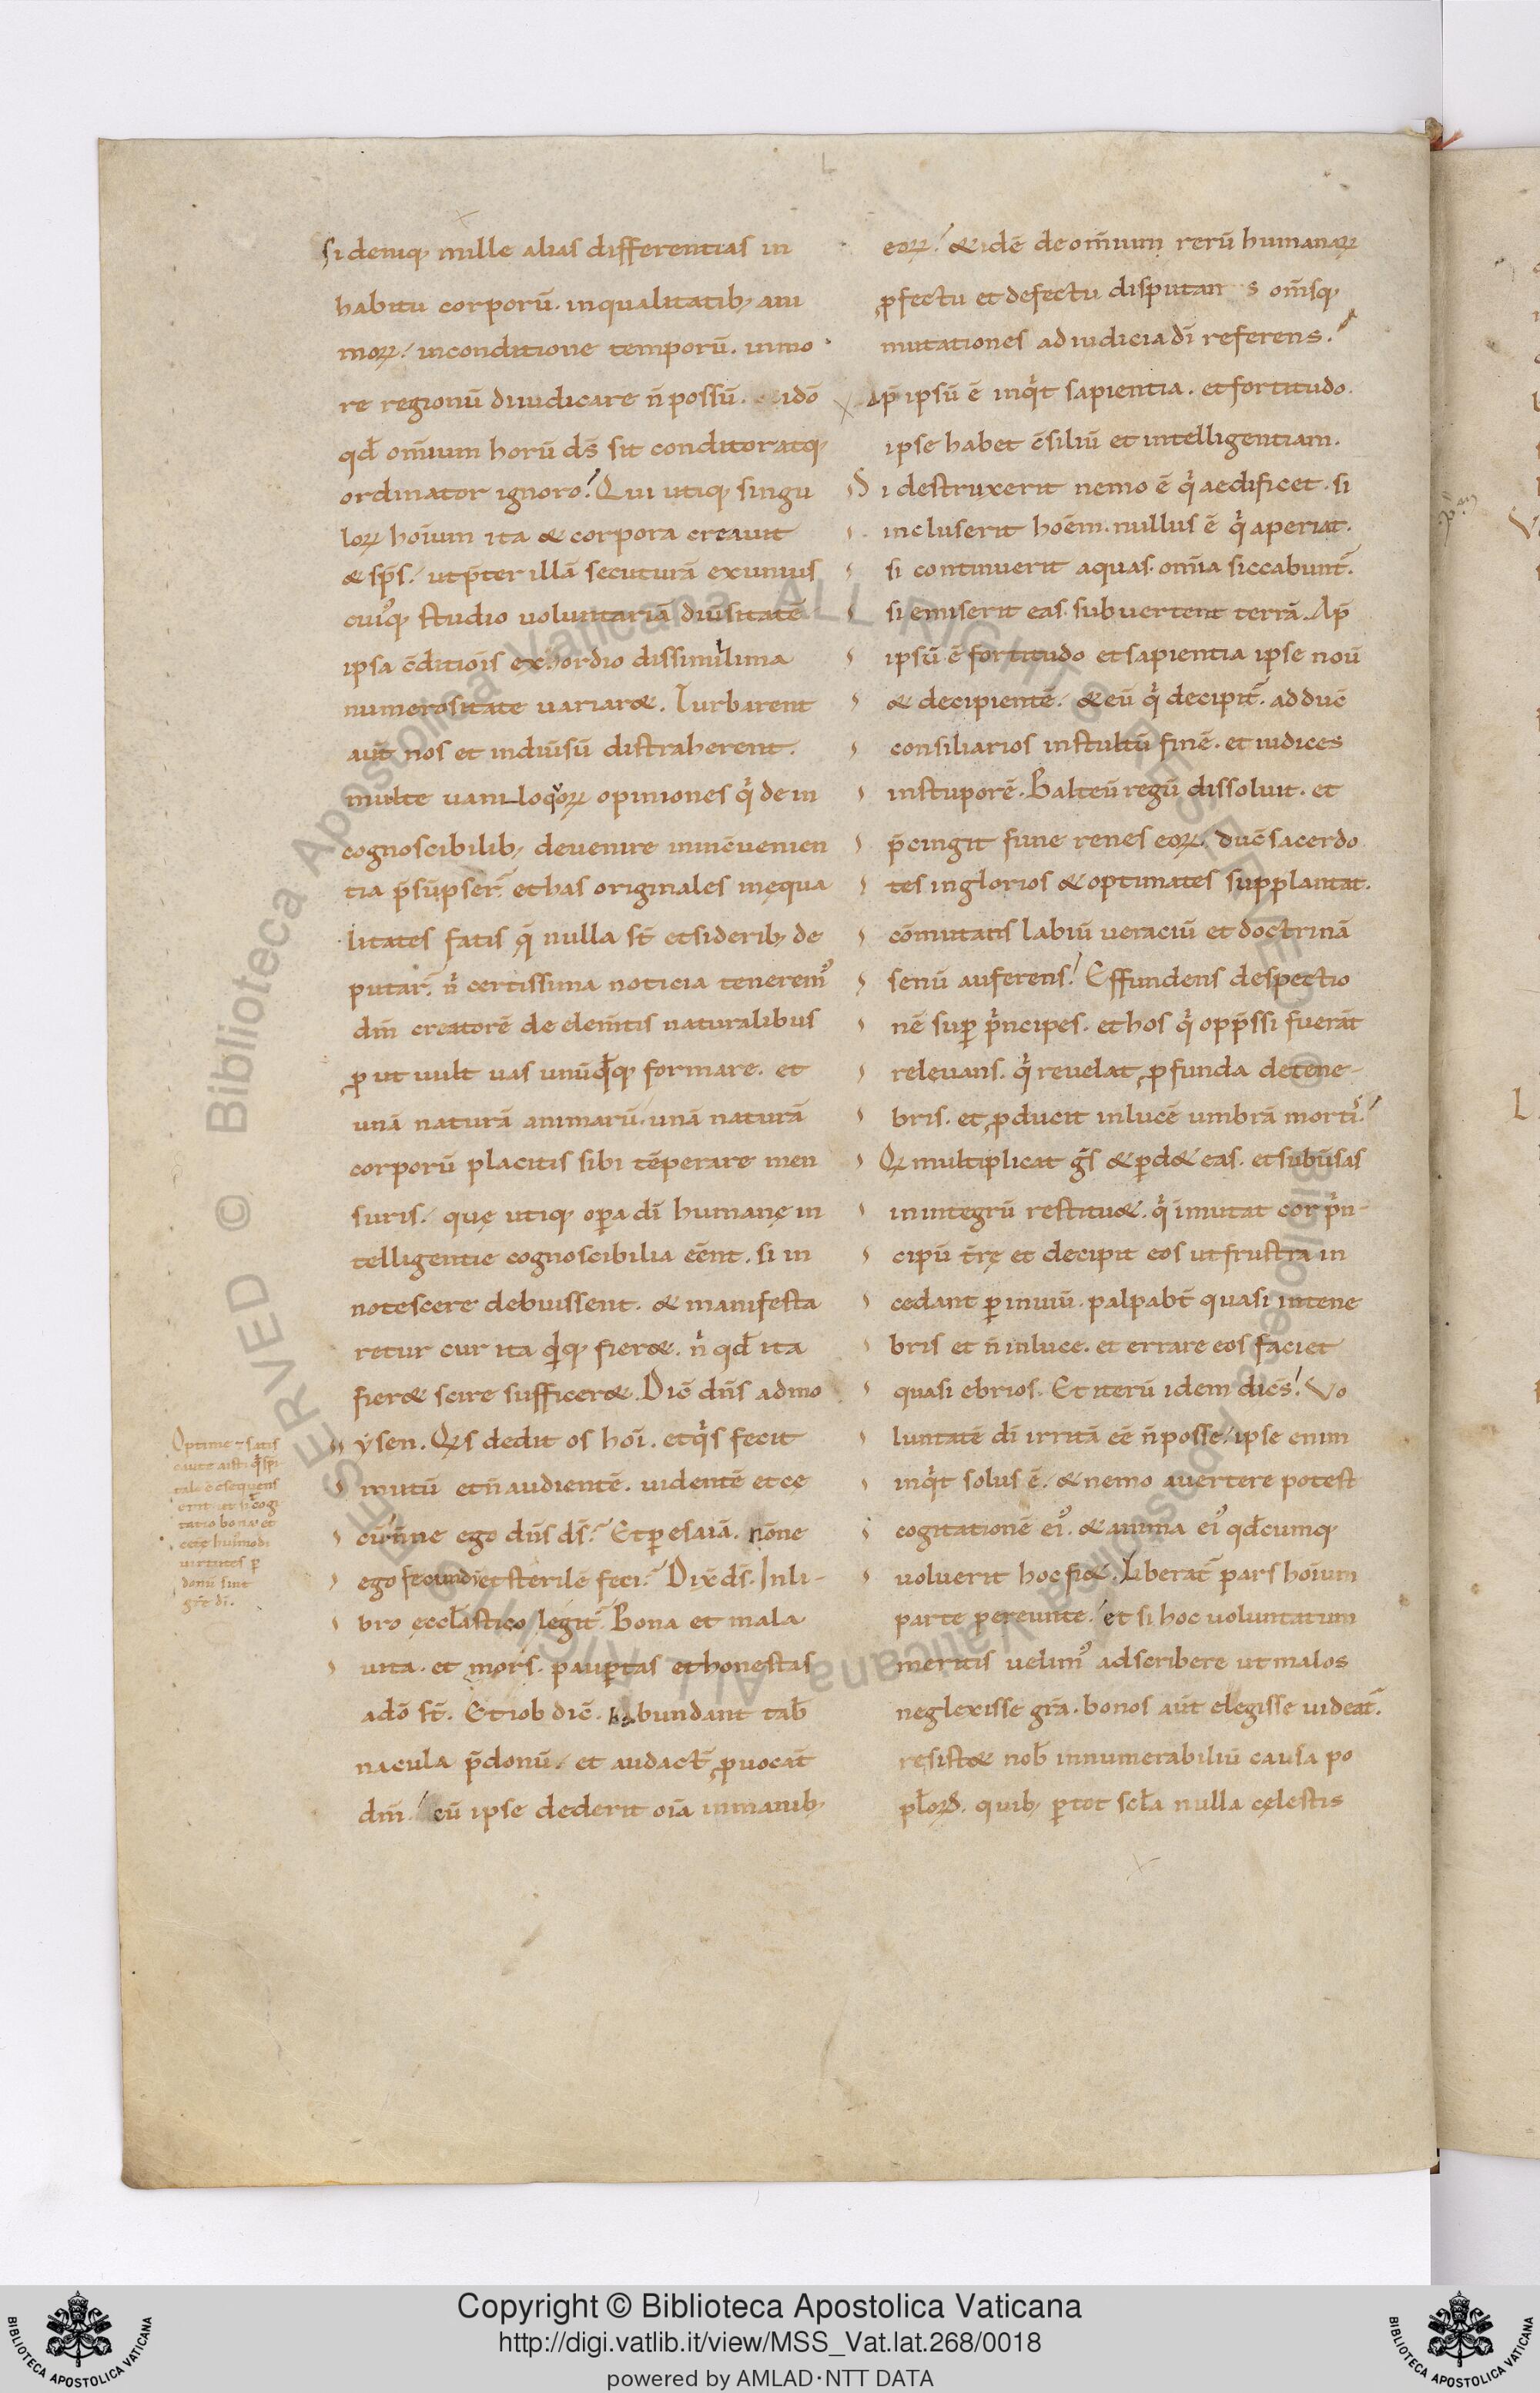 si deniq; mille alias differentias in
habitu corporū. in qualitatib; ani
moꝝ. in conditione temporū. in mo
re regionū diiudicare n̄ possū. idō
qđ om̄ium horū ds̄ sit conditor atq;
ordinator ignoro? Qui utiq; singu
loꝝ hoīum ita & corpora creauit
& sp̄s. ut p̄ter illā secuturā ex unius
cuiꝰq; studio uoluntariā diūsitatē
ipsa c̄ditiōis exordio dissimillima
numerositate uariar&. Turbarent
aut̄ nos et in diuisū distraherent.
multe uaniloquoꝝ opiniones qi de in
cognoscibilib; deuenire in incuenien
tia p̄sūpser̄. et has originales inęqua
litates fatis q̄ nulla st̄ et siderib; de
putar̄. ni certissima noticia teneremꝰ
dm̄ creatorē de elem̄tis naturalibus
ꝓut uult uas unūqđq; formare. et
unā naturā animarū. unā naturā
corporū placitis sibi tēperare men
suris. quę utiq; oꝑa dī humanę in
telligentie cognoscibilia eēnt. si in
notescere debuissent. & manifesta
retur cur ita qdq; fier&. ni qđ ita
fier& scire sufficer&. Dic̄ dn̄s ad mo
ysen. Qis dedit os hoī. et qis fecit
mutū et n̄ audientē. uidentē et cę
cū. n̄ne ego dn̄s ds̄? Et ꝑ esaiā. nōne
ego fecundū et sterilē feci? Dix̄ ds̄. In li-
bro ecclāstico legit̄. Bona et mala
uita. et mors. pauꝑtas et honestas
a dō st̄. Et iob dic̄. habundant tab̄
nacula p̄donū. et audact̄ ꝓuocant̄
dm̄. cū ipse dederit oīa in manib;
eoꝝ? & idē de om̄ium rerū humanaꝝ
ꝓfectu et defectu disputans om̄sq;
mutationes ad iudicia dī referens.
Ap̄ ipsū ē inqit sapientia. et fortitudo.
ipse habet c̄siliū et intelligentiam.
Si destruxerit nemo ē qi aedificet. si
incluserit hoēm. nullus ē qi aperiat.
si continuerit aquas. om̄ia siccabunt̄.
si emiserit eas. subuertent terrā. Ap̄
ipsū ē fortitudo et sapientia ipse nou̅
& decipientē. & eū qi decipit̄. adduc̄
consiliarios in stultū finē. et iudices
in stuporē. Balteū regū dissoluit. et
p̄cingit fune renes eoꝝ. duc̄ sacerdo
tes inglorios & optimates supplantat.
cōmutans labiū ueraciū et doctrinā
senū auferens. Effundens despectio
nē suꝑ pincipes. et hos qi opp̄ssi fuerāt
releuans. qi reuelat ꝓfunda de tene-
bris. et ꝓducit in lucē umbrā mortis.
Qi multiplicat gs̄ & ꝑd& eas. et subūsas
in integrū restitu&. qi īmutat cor pin-
cipū tr̄ę et decipit eos ut frustra in
cedant ꝑ inuiū. palpabt̄ quasi in tene
bris et n̄ in luce. et errare eos faciet
quasi ebrios. Et iterū idem dic̄s. Vo
luntatē dī irritā eē n̄ posse. ipse enim
inqit solus ē. & nemo auertere potest
cogitationē eiꝰ. & anima eiꝰ qđcumq;
uoluerit hoc fi&. Liberat̄ pars hoīum
parte pereunte. et si hoc uoluntatum
meritis uelimꝰ adscribere ut malos
neglexisse gra̅. bonos aut̄ elegisse uideat̄.
resist& nob̄ innumerabiliū causa po
pl̄oꝝ. quib; ꝑ tot scl̄a nulla cęlestis
Optime & satis
tatio bona et
uirtutes ꝑ
donū sint
Copyright © Biblioteca Apostolica Vaticana
http://digi.vatlib.it/view/MSS_Vat.lat.268/0018
powered by AMLAD·NTT DATA